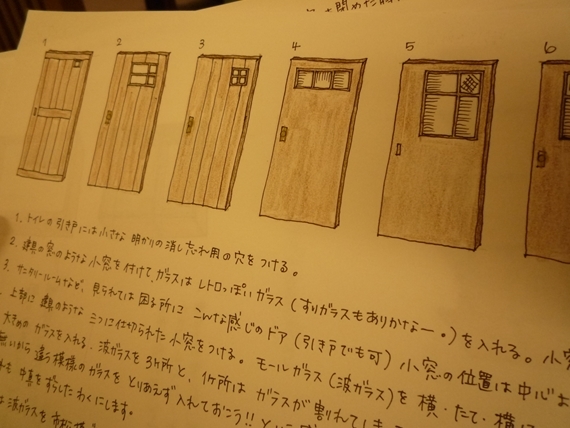 を閉めた
1 2 3 4 5 6
1. トイレの引き戸には小さな 明かりの消し忘れ用の穴をつける。
2. 建具の窓のような小窓を付けて、ガラスはレトロっぽいガラス(すりガラスもありかなー。)を入れる。小窓
3. サニタリールームなど、見られては困る所に こんな感じのドア(引き戸でも可) 小窓の位置は中心よ
上部に建具のような 三つに仕切られた小窓をつける。モールガラス(波ガラス)を 横・たて・横に
大きめのガラスを入れる、波ガラスを3ヶ所と、1ヶ所は ガラスが割れてしま
無いから違う模様のガラスを とりあえず入れておこう!!
中真をずらしたわくにします。
波ガラスを